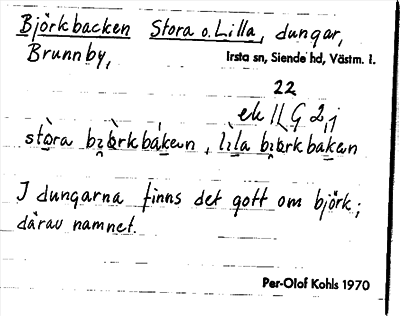 Björkbacken Stora o. Lilla, dungar,
Brunnby, Irsta sn, Siende hd, Västm. l.
22
ek 11 G 2 j
stòra bɪòrkbákan, lìla bɪòrkbakan
I dungarna finns det gott om björk;
därav namnet.
Per-Olof Kohls 1970